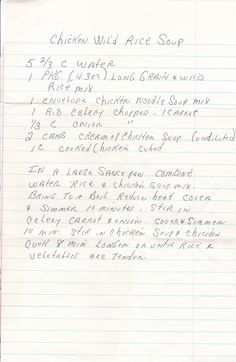 Chicken Wild Rice Soup
5 2/3 C Water
1 PKG (4.3oz) Long Grain & Wild
Rice mix
1 envelope Chicken Noodle Soup mix
1 Rib Celery chopped. 1 Carrot
1/3 C onion "
2 cans cream of Chicken Soup (undiluted)
1 C cooked Chicken cubed
In a Large Sauce pan combine
water Rice & Chicken Soup mix.
Bring to a Boil Reduce heat cover
& simmer 10 minutes. Stir in
Celery Carrot & onion. Cover & Simmer
10 min. Stir in Chicken Soup & Chicken
Cook 8 min Longer or until Rice &
Vegetables are Tender